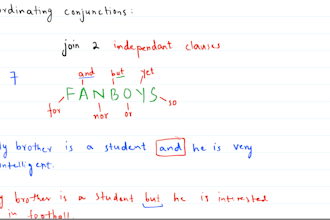 ordinating conjunctions:
join 2 independant clauses
7
and but yet
FANBOYS
for nor or so
y brother is a student and he is very
ntelligent.
brother is a student but he is interested
in football